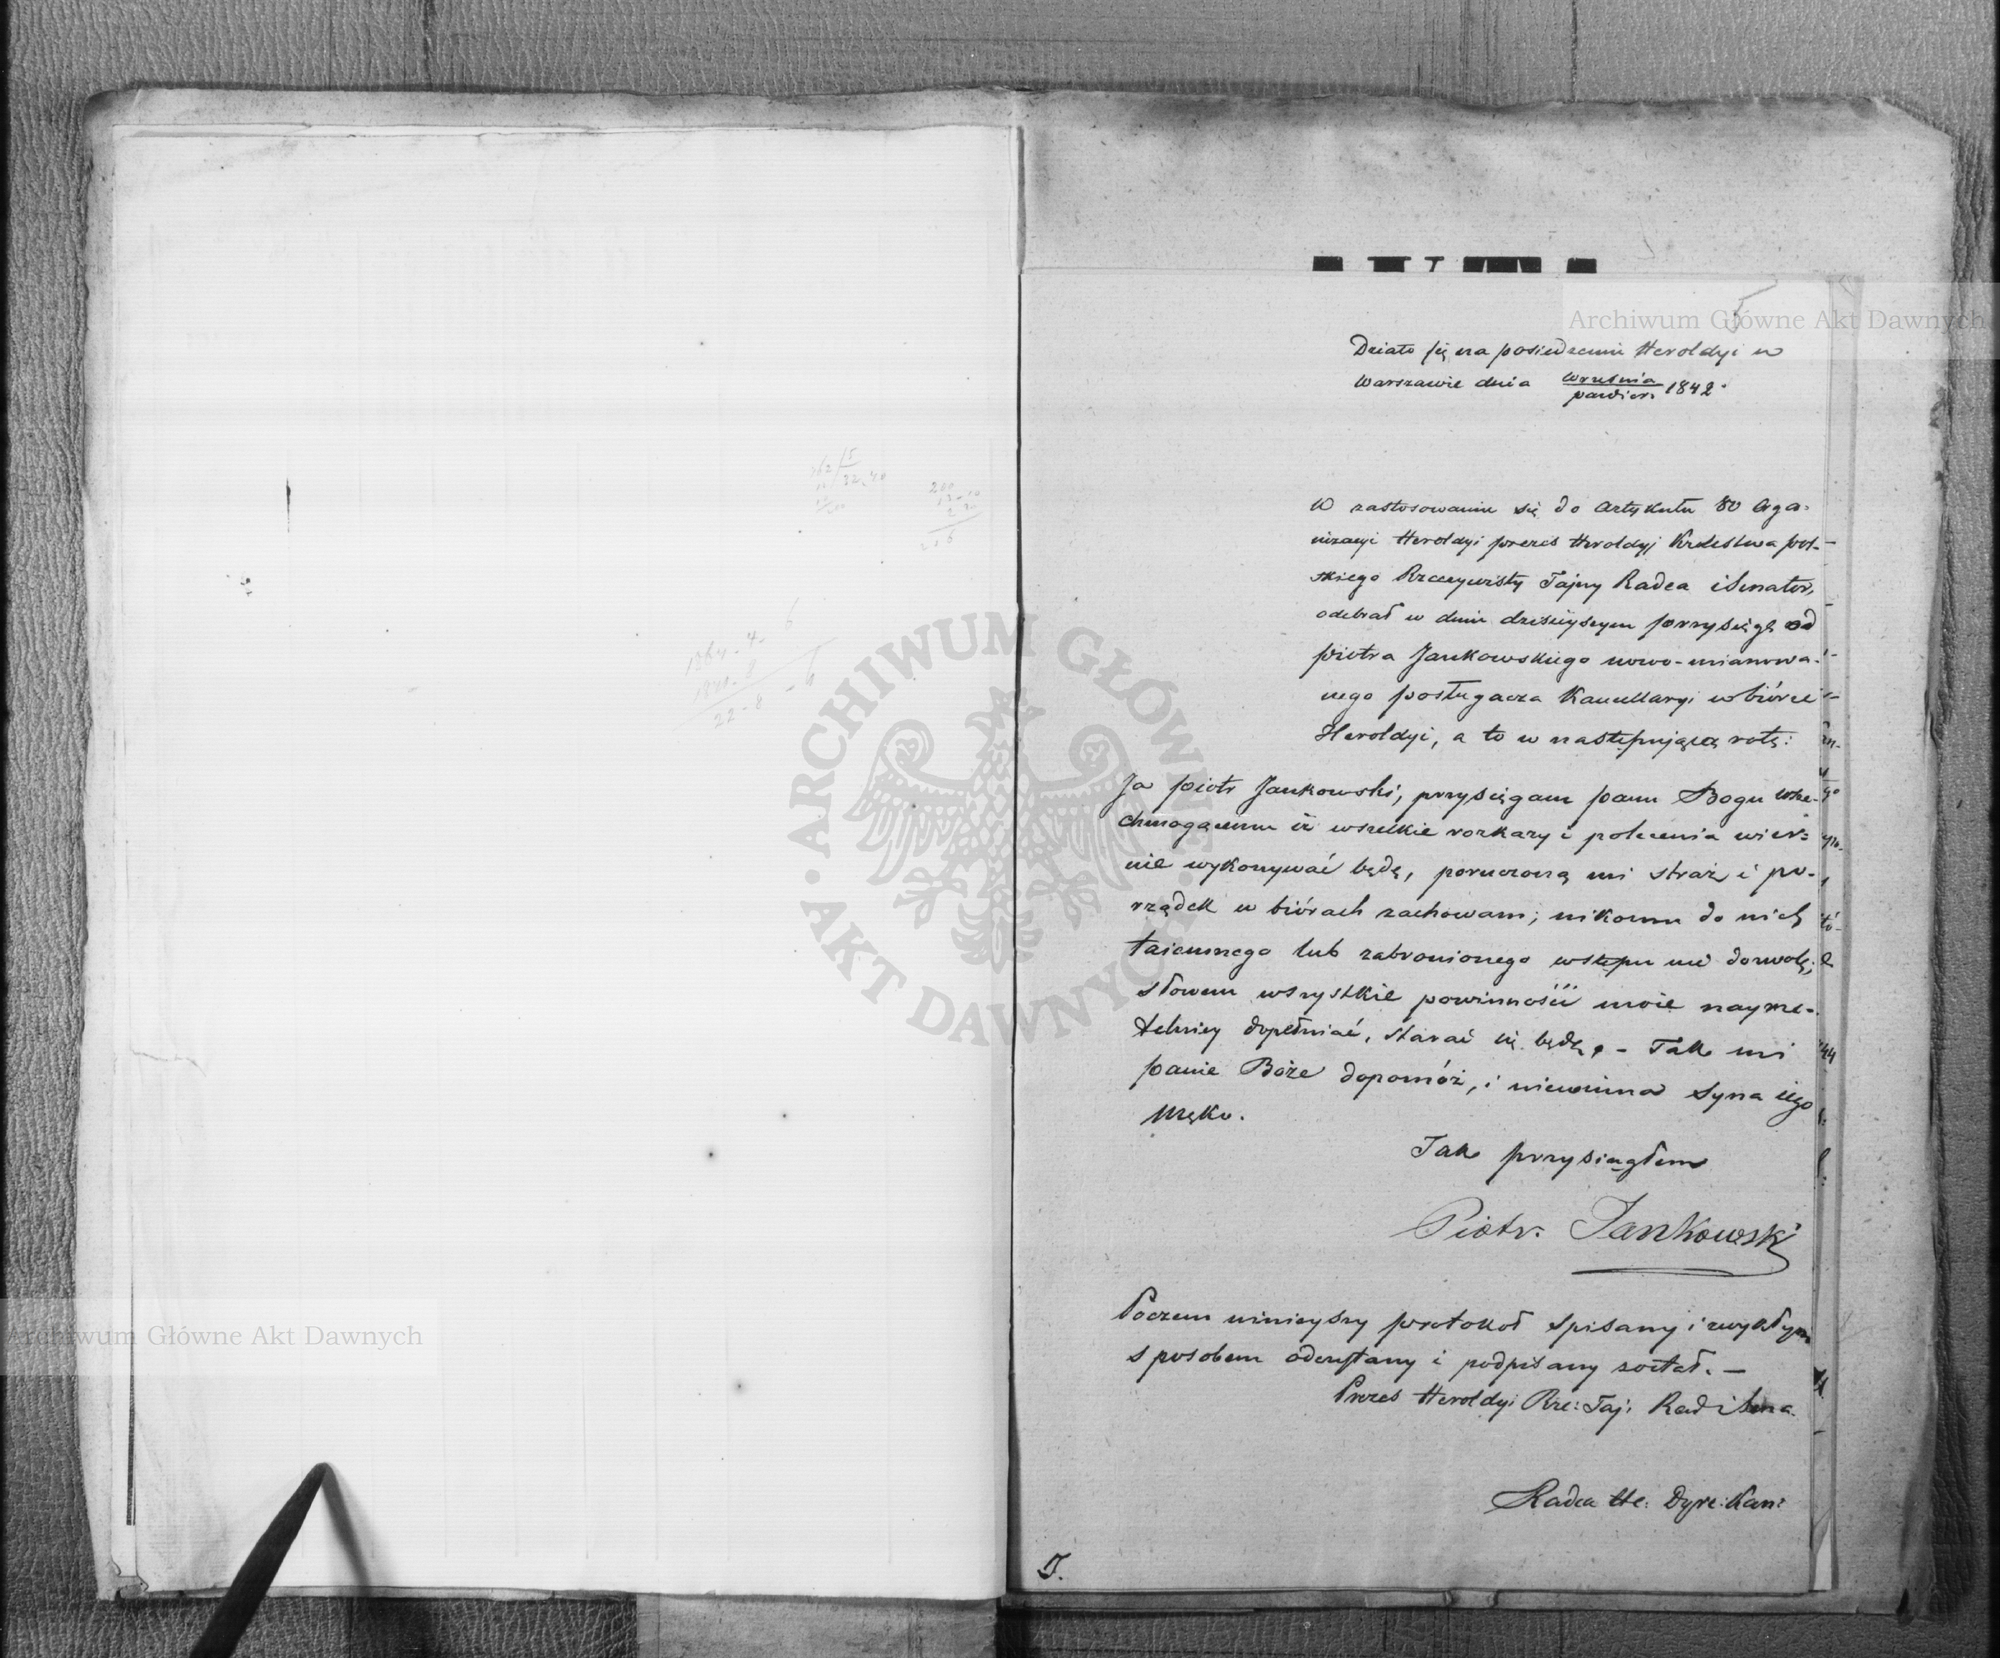 5
Działo się na posiedzeniu Heroldyi w
Warszawie dnia września
paździer: 1842.
W zastosowaniu się do Artykułu 80 Orga-
nizacyi Heroldyi prezes Heroldyi Królestwa pol-
skiego Rzeczywisty Tajny Radca i Senator,
odebrał w dniu dzisiejszym przysięgę od
piotra Jankowskiego nowo-mianowa-
nego posługacza Kancellaryi w biórze
Heroldyi, a to w następującą rotę:
Ja piotr Jankowski, przysięgam panu Bogu wsze-
chmogącemu iż wszelkie rozkazy i polecenia wier=
nie wykonywać będę, poruczoną mi straż i po-
rządek w biórach zachowam; nikomu do nich
tajemnego lub zabronionego wstępu nie dozwolę;
słowem wszystkie powinności moie nayrze-
telniey dopełniać, starać się będę, - Tak mi
panie Boże dopomóż, i niewinna Syna iego
Męko.
Tak przysiągłem
Piotr. Jankowski
Poczem ninieyszy protokoł spisany i zwykłym
sposobem odczytany i podpisany został. —
Prezes Heroldyi Rze: Taj: Rad i Sena.
Radca He: Dyre: Kan:
J.
1864-4-6
22-8-6
Archiwum Główne Akt Dawnych
ARCHIWUM GŁÓWNE · AKT DAWNYCH ·
Archiwum Główne Akt Dawnych